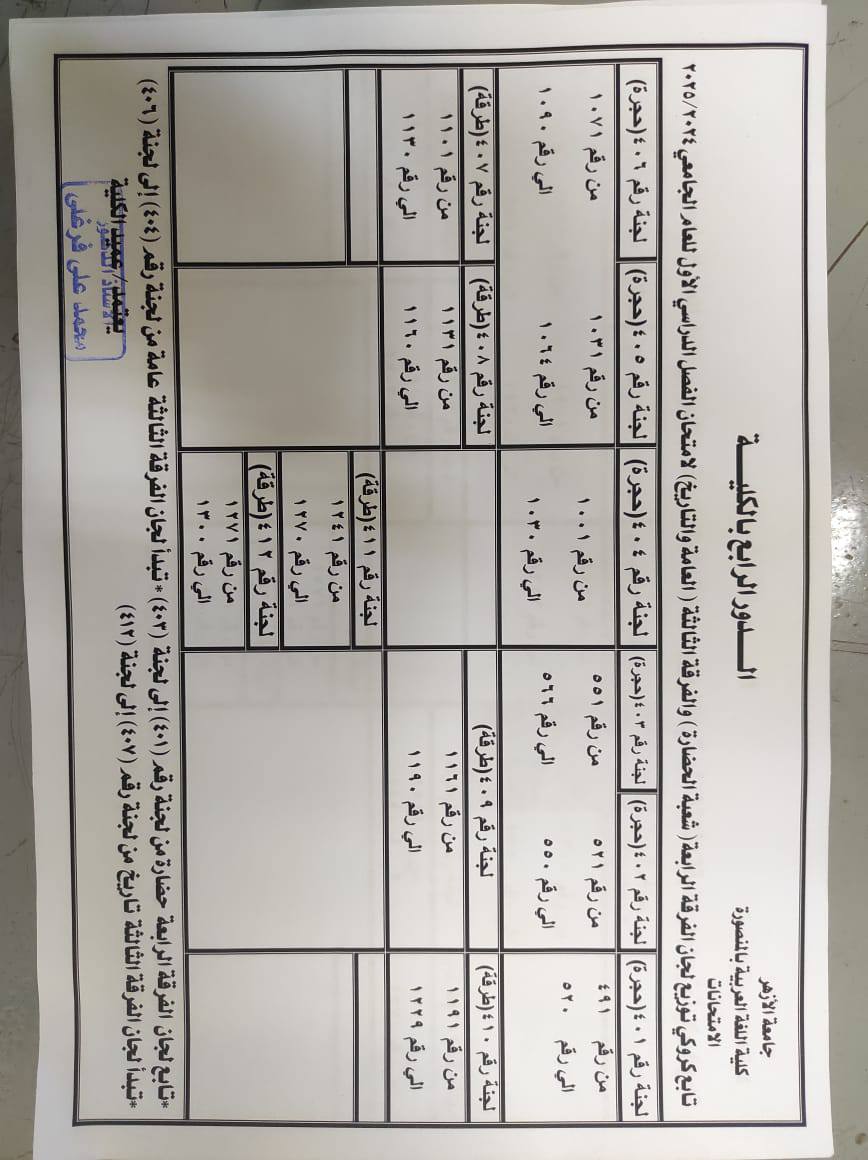 جامعة الأزهر
كلية اللغة العربية بالمنصورة
الامتحانات
الـــدور الرابع بالكليـــة
تابع كروكي توزيع لجان الفرقة الرابعة ( شعبة الحضارة ) والفرقة الثالثة ( العامة والتاريخ ) لامتحان الفصل الدراسي الأول للعام الجامعي ٢٠٢٥/٢٠٢٤
لجنة رقم ٤٠١(حجرة)
من رقم ٤٩١
الي رقم ٥٢٠
لجنة رقم ٤٠٢(حجرة)
من رقم ٥٢١
الي رقم ٥٥٠
لجنة رقم ٤٠٣(حجرة)
من رقم ٥٥١
الي رقم ٥٦٦
لجنة رقم ٤٠٤(حجرة)
من رقم ١٠٠١
الي رقم ١٠٣٠
لجنة رقم ٤٠٥(حجرة)
من رقم ١٠٣١
الي رقم ١٠٦٤
لجنة رقم ٤٠٦(حجرة)
من رقم ١٠٧١
الي رقم ١٠٩٠
لجنة رقم ٤١٠(طرقة)
من رقم ١١٩١
الي رقم ١٢٢٩
لجنة رقم ٤٠٩(طرقة)
من رقم ١١٦١
الي رقم ١١٩٠
لجنة رقم ٤٠٨(طرقة)
من رقم ١١٣١
الي رقم ١١٦٠
لجنة رقم ٤٠٧(طرقة)
من رقم ١١٠١
الي رقم ١١٣٠
لجنة رقم ٤١١(طرقة)
من رقم ١٢٤١
الي رقم ١٢٧٠
لجنة رقم ٤١٢(طرقة)
من رقم ١٢٧١
الي رقم ١٣٠٠
*تابع لجان الفرقة الرابعة حضارة من لجنة رقم (٤٠١) إلى لجنة (٤٠٣) *تبدأ لجان الفرقة الثالثة عامة من لجنة رقم (٤٠٤) إلى لجنة (٤٠٦)
*تبدأ لجان الفرقة الثالثة تاريخ من لجنة رقم (٤٠٧) إلى لجنة (٤١٢)
يعتمد/ عميد الكلية
الأستاذ الدكتور
محمد على فرغلى